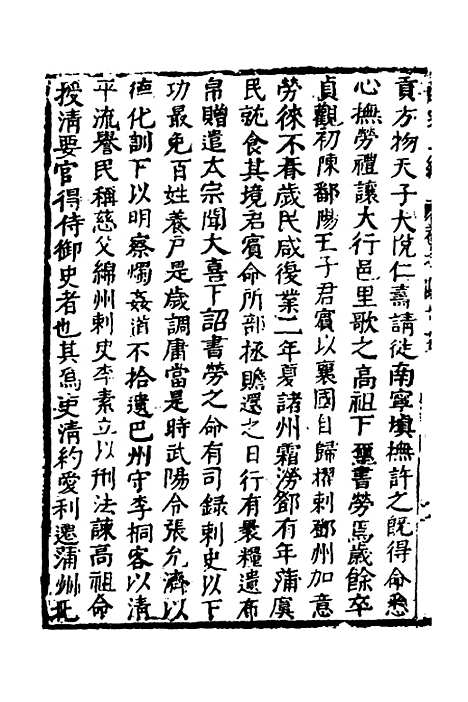 貢方物天子大悅仁壽請徙南寧塡撫許之旣得命悉
心撫勞禮讓大行邑里歌之高祖下璽書勞焉歲餘卒
貞觀初陳鄱陽王子君賓以襄國自歸擢刺鄧州加意
勞徠不朞歲民咸復業二年夏諸州霜澇鄧有年蒲虞
民就食其境君賓命所部拯贍還之日行有裹糧遺布
帛贈遣太宗聞大喜下詔書勞之命有司錄刺史以下
功最免百姓養戶是歲調庸當是時武陽令張允濟以
德化訓下以明察燭姦道不拾遺巴州守李桐客以清
平流譽民稱慈父綿州刺史李素立以刑法諫高祖命
授清要官得侍御史者也其爲吏清約愛利遷蒲州